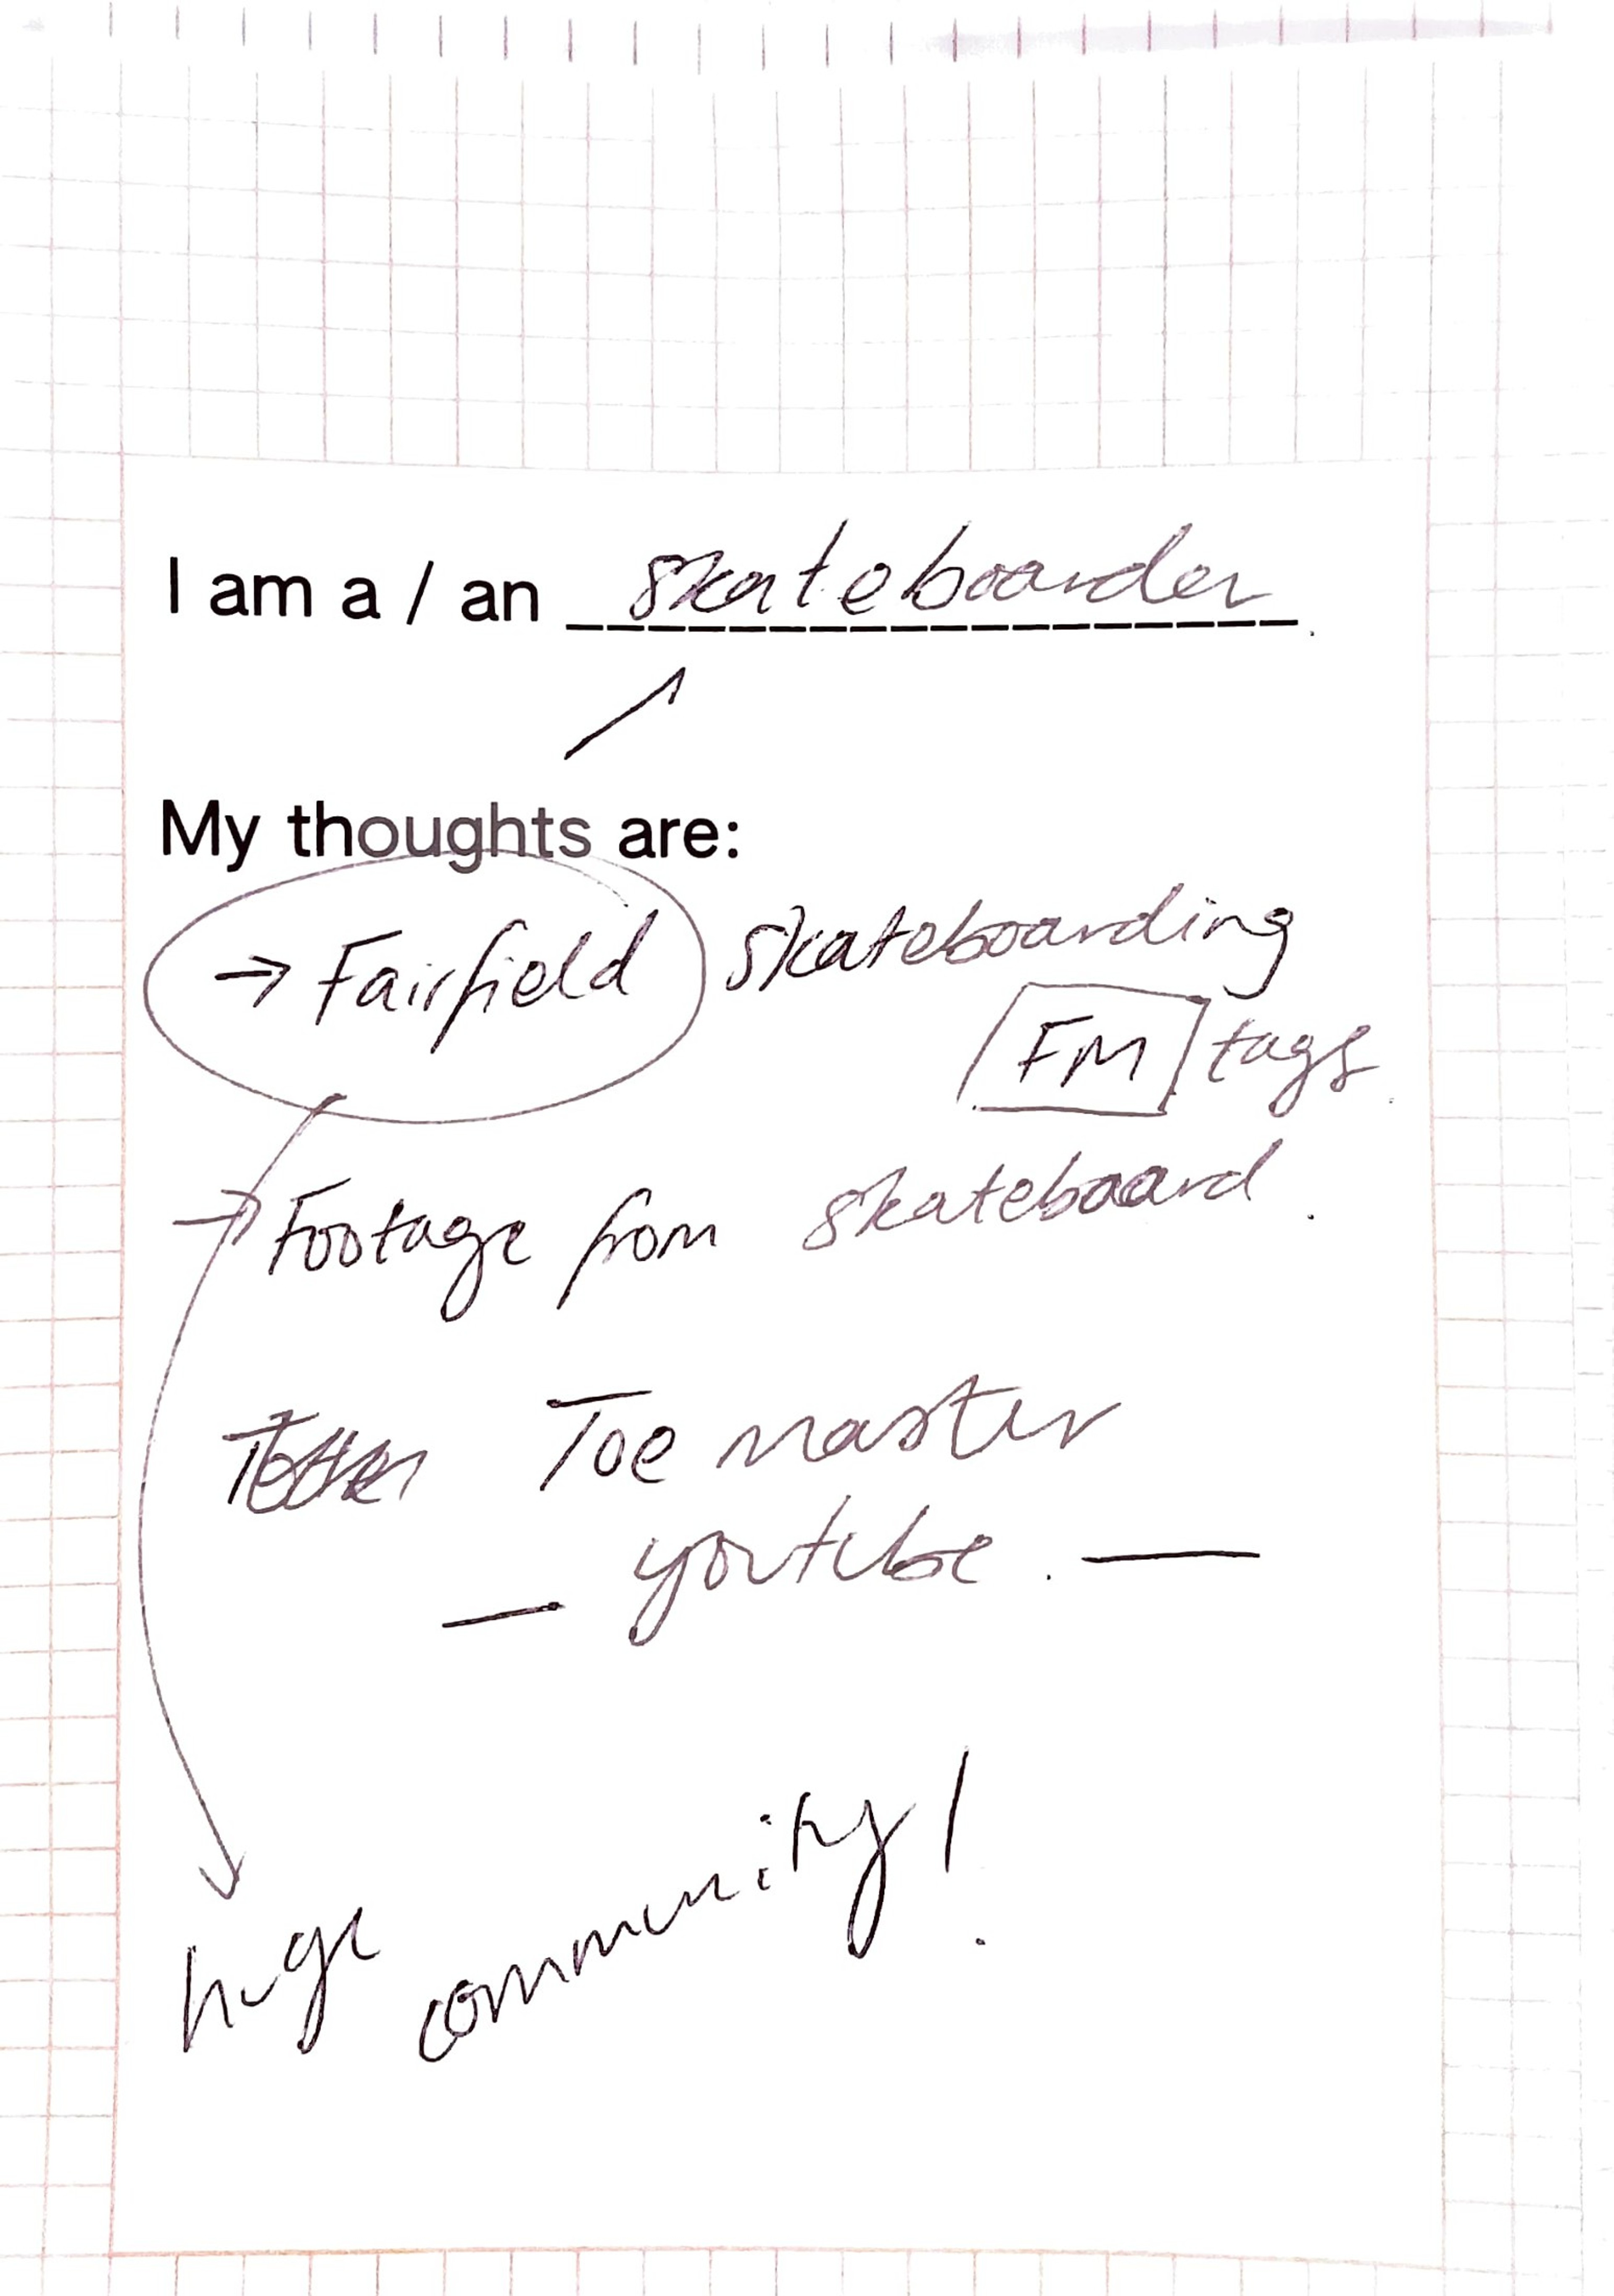 I am a / an skateboarder.
My thoughts are:
→ Fairfield skateboarding
FM tags.
→ Footage from skateboard.
Toe master
— youtube. —
huge community!